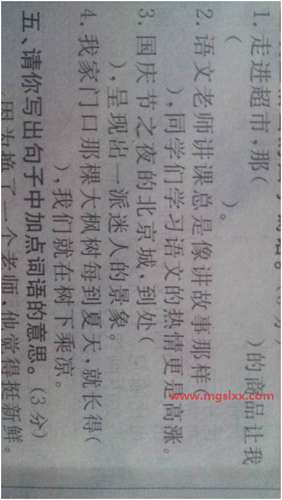 1. 走进超市,那(      )的商品让我
(      )。
2. 语文老师讲课总是像讲故事那样(
),同学们学习语文的热情更是高涨。
3. 国庆节之夜的北京城,到处(
),呈现出一派迷人的景象。
4. 我家门口那棵大枫树每到夏天,就长得(
),我们就在树下乘凉。
五、请你写出句子中加点词语的意思。(3分)
因为换了一个老师,他觉得挺新鲜。
www.mgslxx.com